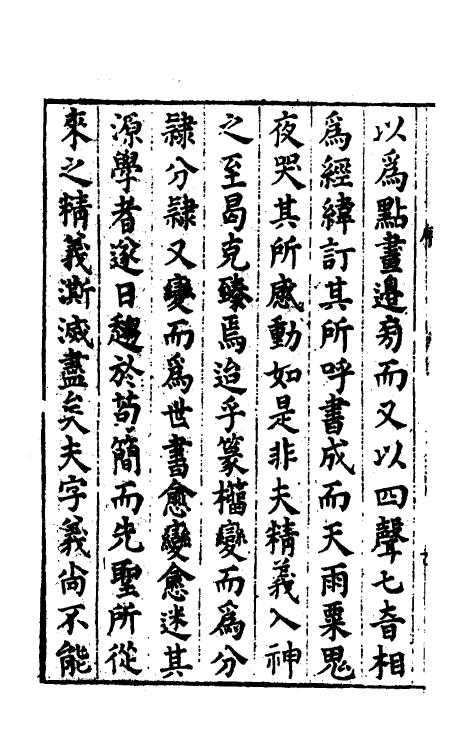 以為點畫邊旁而又以四聲七音相
為經緯訂其所呼書成而天雨粟鬼
夜哭其所感動如是非夫精義入神
之至曷克臻焉迨乎篆櫂變而為分
隷分隷又變而為世書愈變愈迷其
源學者遂日趨於苟簡而先聖所從
來之精義澌滅盡矣夫字義尚不能